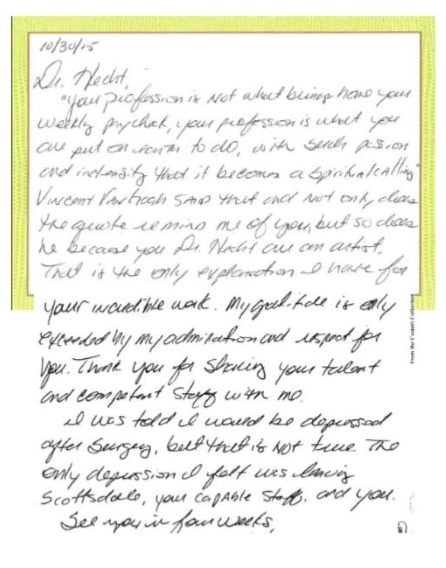 10/30/15
Dr. Hecht,
"Your profession is not what brings home your
weekly paycheck, your profession is what you
are put on earth to do, with such passion
and intensity that it becomes a spiritual calling"
Vincent Van Gogh said that and not only does
the quote remind me of you, but so does
he because you Dr. Hecht are an artist.
That is the only explanation I have for
your incredible work. My gratitude is only
exceeded by my admiration and respect for
you. Thank you for sharing your talent
and competent staff with me.
I was told I would be depressed
after surgery, but that is not true. The
only depression I felt was leaving
Scottsdale, your capable staff, and you.
See you in four weeks,
From the Couture Collection